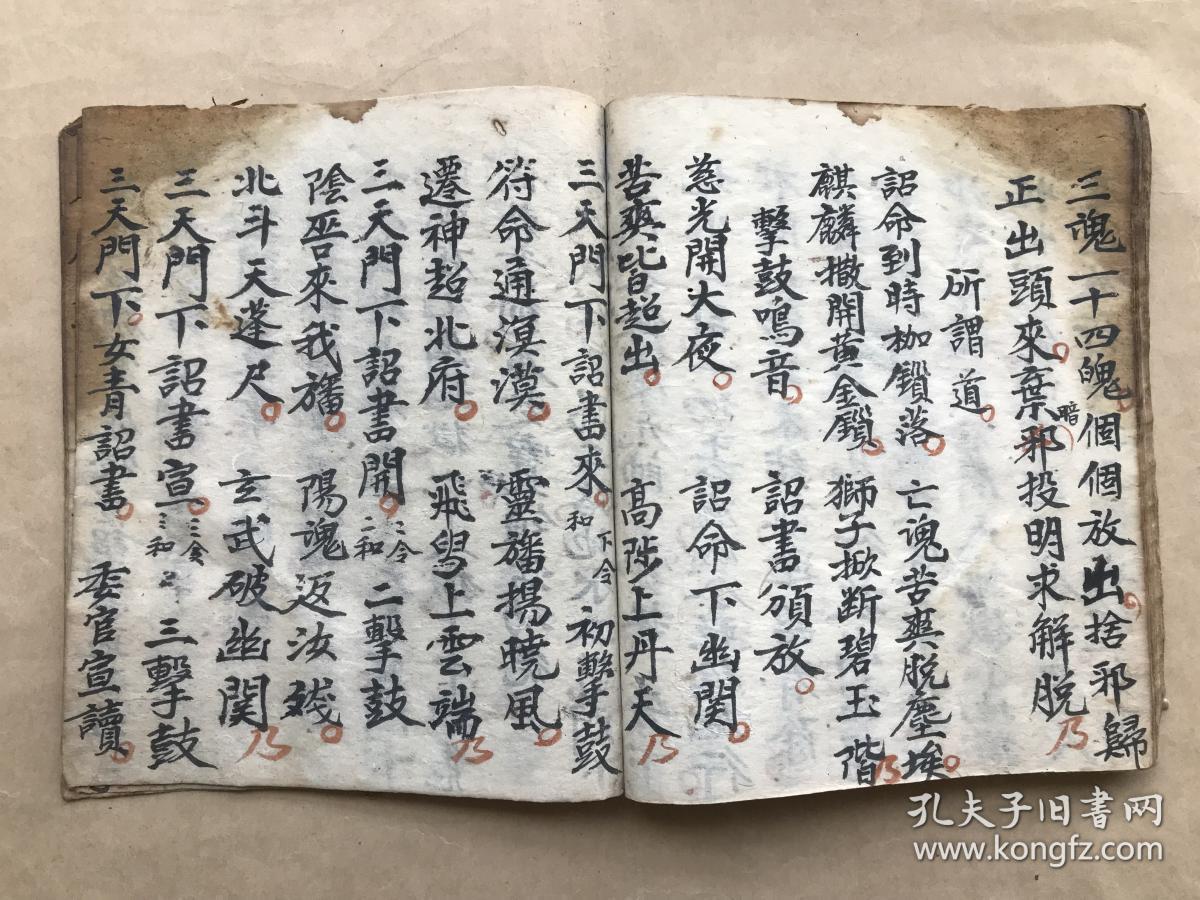 三魂一十四魄個個放出捨邪歸
正出頭來棄邪投明求解脫
暗
所謂道
詔命到時枷鎖落 亡魂苦爽脫塵埃
麒麟撒開黃金鎖 獅子掀斷碧玉階
擊鼓鳴音 詔書頒放
慈光開大夜 詔命下幽関
苦爽皆超出 高陟上丹天
三天門下詔書來 和 下令 初擊鼓
符命通溟漠 靈旛揚曉風
遷神超北府 飛舄上雲端
三天門下詔書開 二令 二和 二擊鼓
陰晷來我旛 陽魂返汝
北斗天蓬尺 玄武破幽関
三天門下詔書宣 三令 三和 三擊鼓
三天門下女青詔書 委官宣讀
孔夫子旧书网
www.kongfz.com